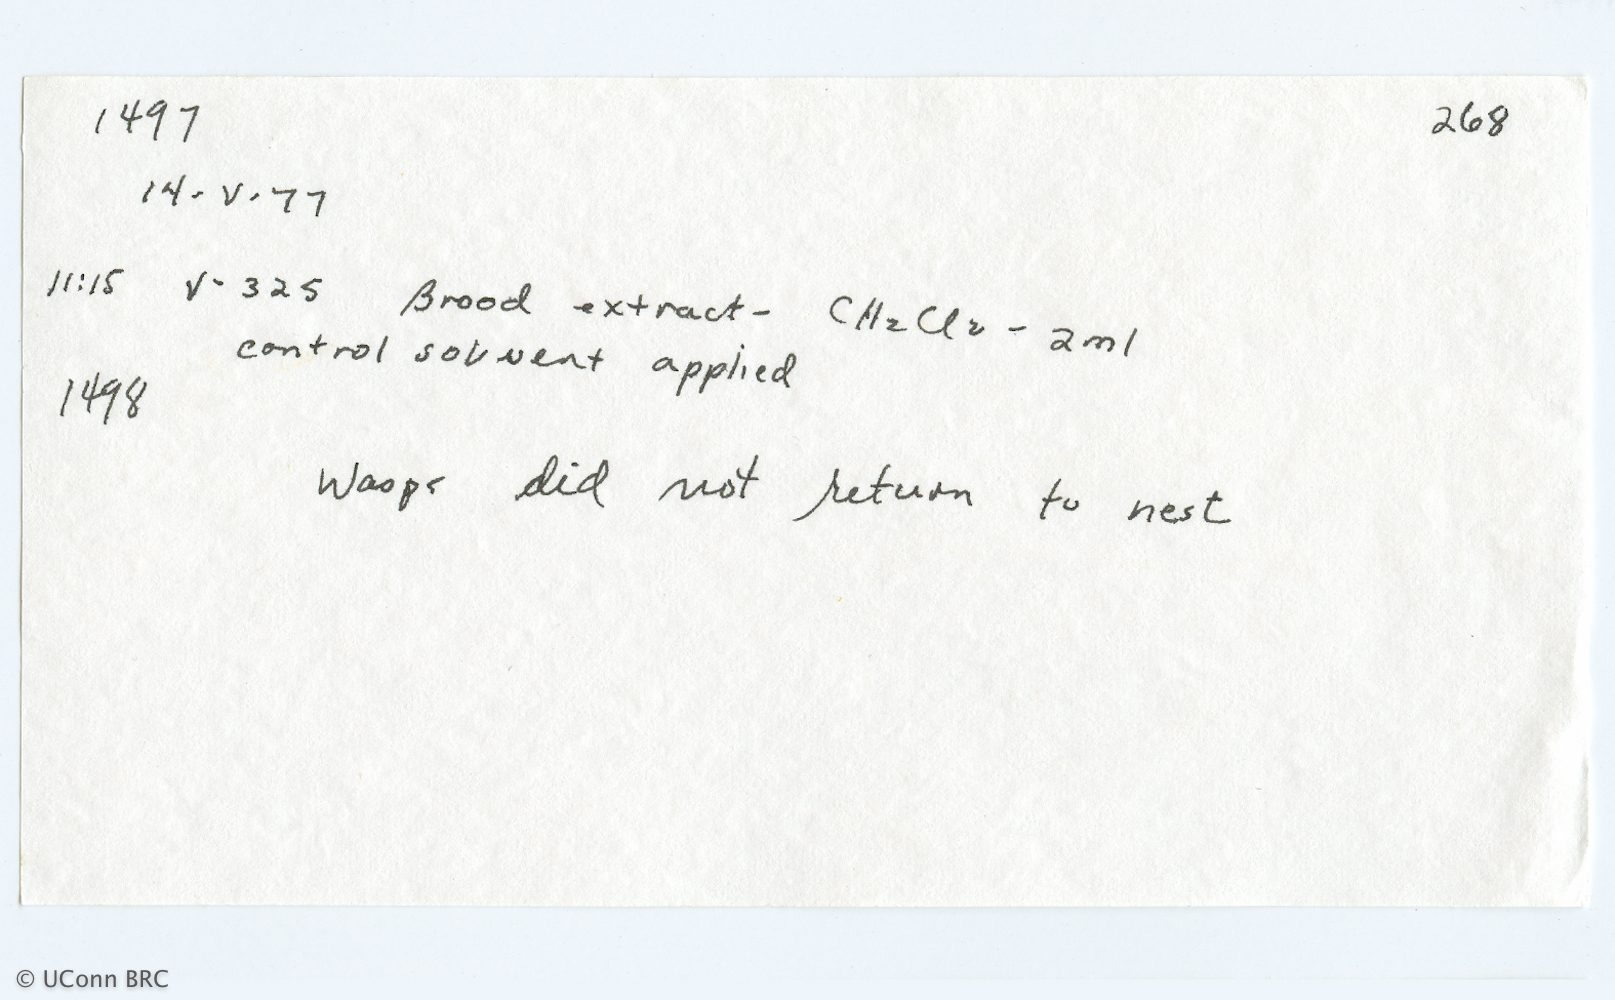 1497 268
14. V. 77
11:15 V-325 Brood extract - CH2Cl2 - 2ml
control solvent applied
1498
Wasps did not return to nest
© UConn BRC